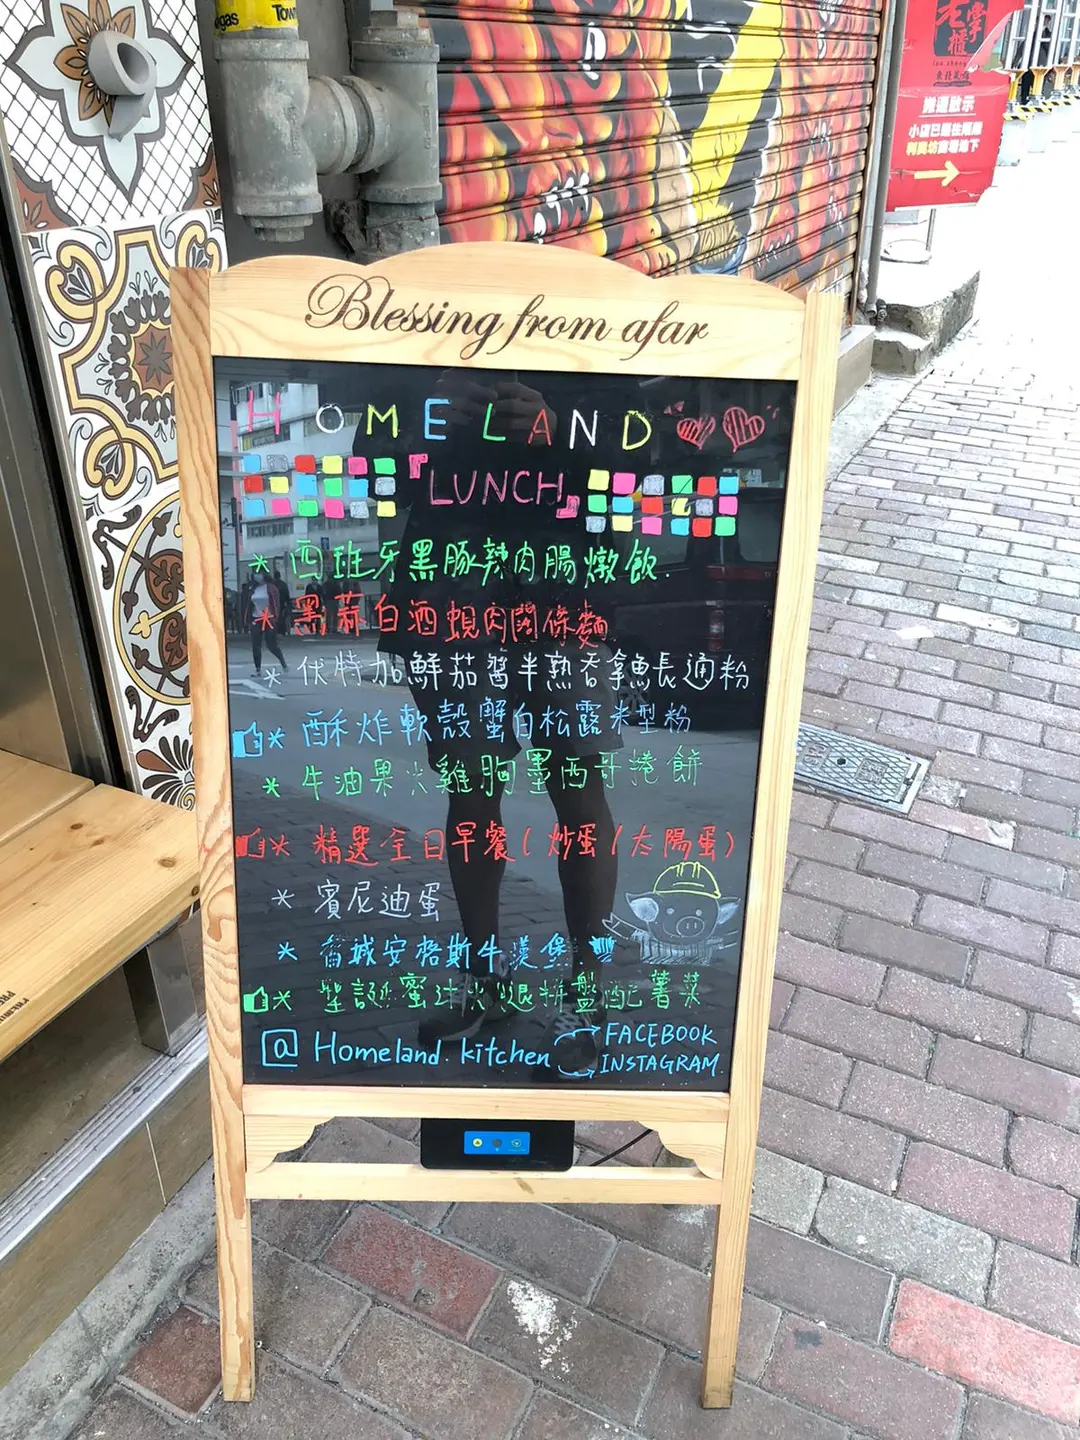 Town
老掌櫃
搬遷啟示
小店已搬往隔離
利奧坊商場地下
Blessing from afar
HOMELAND
『LUNCH』
* 西班牙黑豚辣肉腸燉飯.
* 黑蒜白酒蜆肉闊條麵
* 伏特加鮮茄醬半熟吞拿魚長通粉
* 酥炸軟殼蟹白松露米型粉
* 牛油果火雞胸墨西哥捲餅
* 精選全日早餐(炒蛋/太陽蛋)
* 賓尼迪蛋
* 舊城安格斯牛漢堡
* 聖誕蜜汁火腿拼盤配薯菜
@ Homeland.kitchen
FACEBOOK
INSTAGRAM.